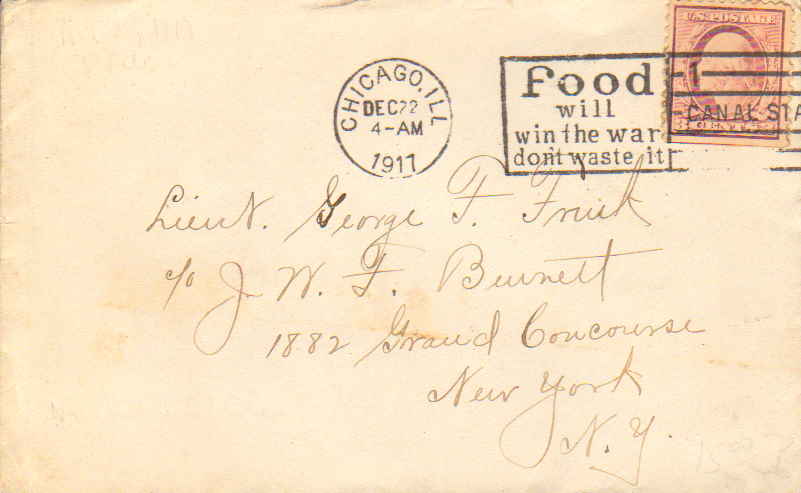 U.S. POSTAGE
CHICAGO, ILL
DEC 22
4-AM
1917
Food
will
win the war
don't waste it
1
CANAL STA
Lieut. George F. Frick
c/o J. W. F. Burnett
1882 Grand Concourse
New York
N. Y.